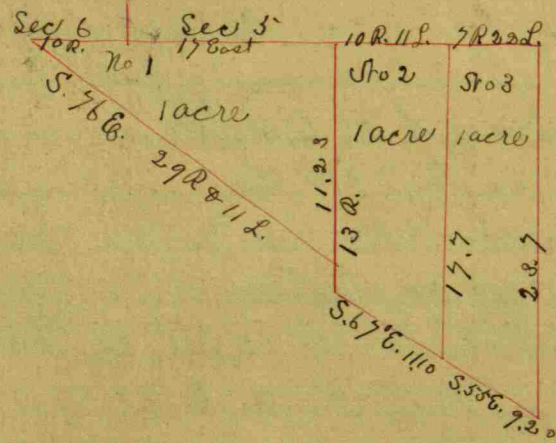 Sec 6
Sec 5
10 R.
17 East
10 R. 11 L.
7 R 22 L.
No 1
No 2
No 3
1 acre
1 acre
1 acre
S. 76 E.
29 R & 11 L.
11.23
13 R.
17.7
23.7
S. 67° E. 11.10
S. 55 E. 9.20